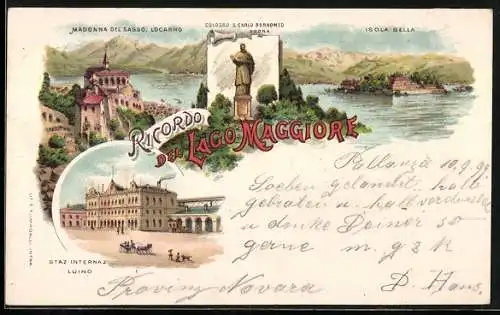 MADONNA DEL SASSO, LOCARNO
COLOSSO S. CARLO BORROMEO
ARONA
ISOLA BELLA
RICORDO
DEL LAGO MAGGIORE
STAZ. INTERNAZ.
LUINO
Pallanza 10.9.99
Soeben gelandet, halb
gebraten u. halb verdurstet
u denke Deiner so
gerne m. g. & k
D. Hans.
Provinz Novara